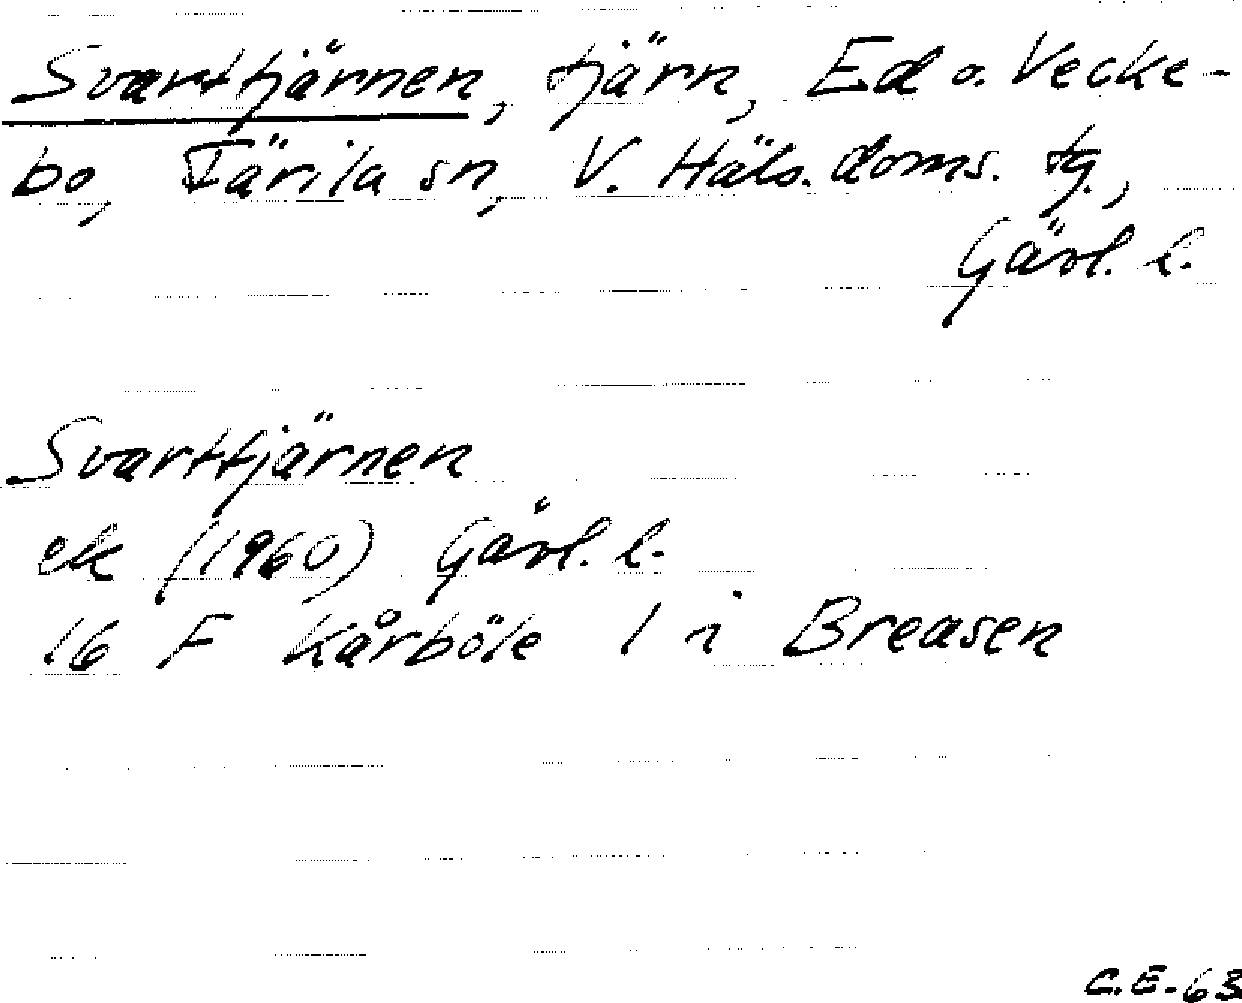 Svarttjärnen, tjärn, Ed o. Vecke-
bo, Färila sn, V. Häls. doms. tg.,
Gävl. l.
Svarttjärnen
ek (1960) Gävl. l.
16 F Kårböle 1 i Breasen
C.E.-63